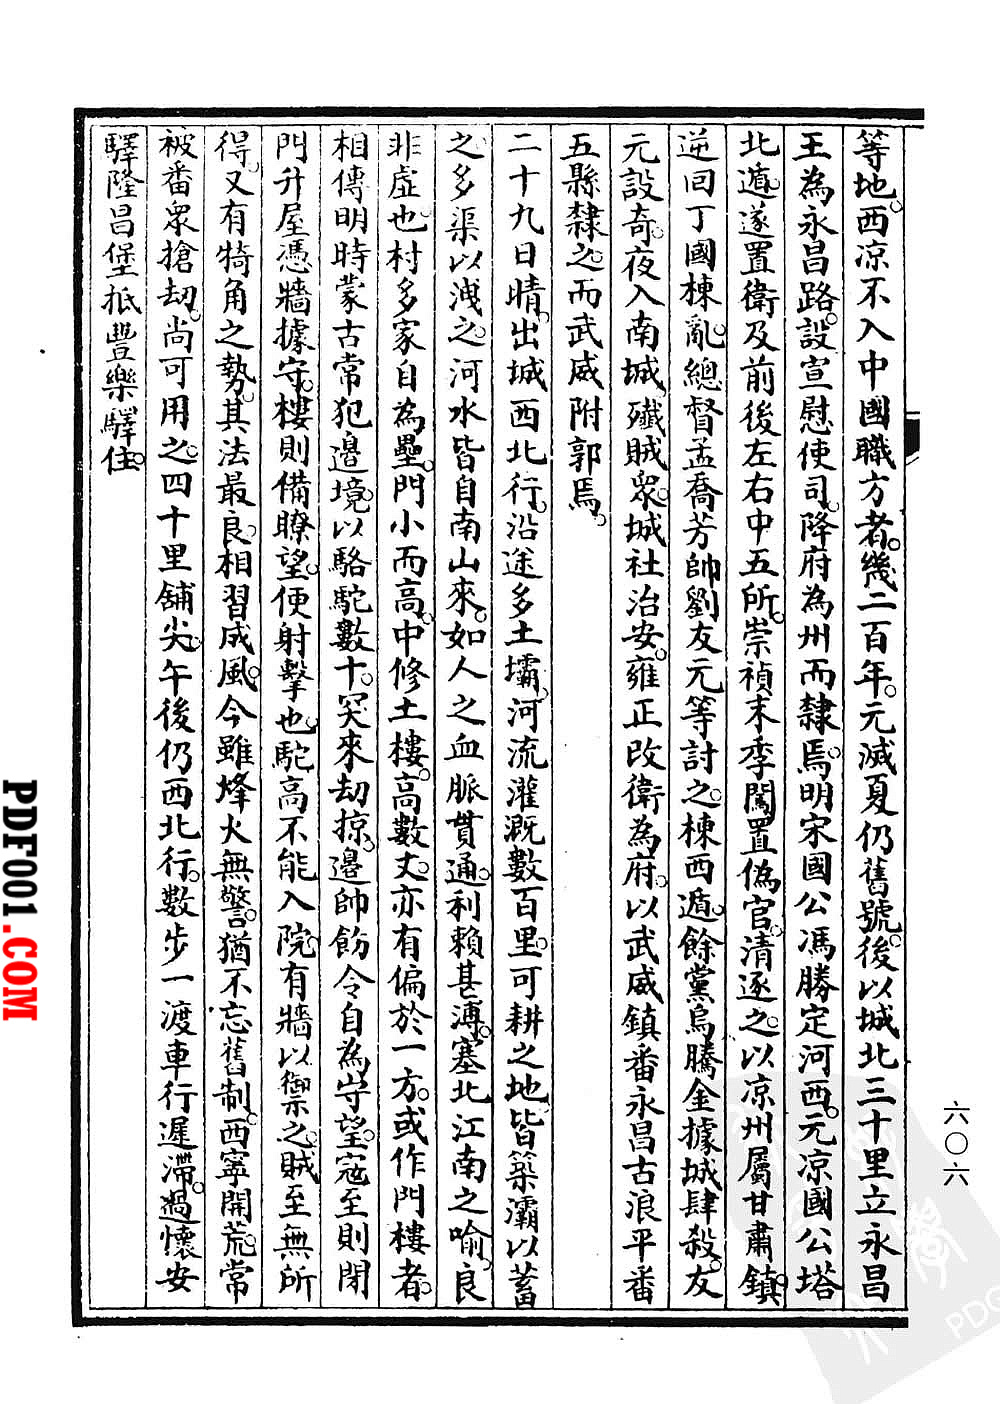 等地。西凉不入中國職方者。幾二百年。元滅夏仍舊號。後以城北三十里立永昌
王為永昌路。設宣慰使司。降府為州而隸焉。明宋國公馮勝定河西。元凉國公塔
北遁。遂置衛及前後左右中五所。崇禎末季闖置偽官。清逐之。以凉州屬甘肅鎮。
逆回丁國棟亂。總督孟喬芳帥劉友元等討之。棟西遁。餘黨烏騰金據城肆殺。友
元設奇。夜入南城。殲賊衆。城社治安。雍正改衛為府。以武威鎮番永昌古浪平番
五縣隸之。而武威附郭焉。
二十九日晴。出城西北行。沿途多土壩。河流灌溉數百里。可耕之地。皆築灞以蓄
之。多渠以洩之。河水皆自南山來。如人之血脈貫通。利賴甚溥。塞北江南之喻。良
非虛也。村多家自為壘。門小而高。中修土樓。高數丈。亦有偏於一方。或作門樓者。
相傳明時蒙古常犯邊境。以駱駝數十。突來劫掠。邊帥飭令自為守望。寇至則閉
門升屋憑牆據守。樓則備瞭望。便射擊也。駝高不能入院。有牆以禦之。賊至無所
得。又有犄角之勢。其法最良。相習成風。今雖烽火無警。猶不忘舊制。西寧開荒。常
被番衆搶劫。尚可用之。四十里舖尖。午後仍西北行。數步一渡。車行遲滯。過懷安
驛隆昌堡抵豐樂驛住。
六〇六
PDF001.COM
PDG